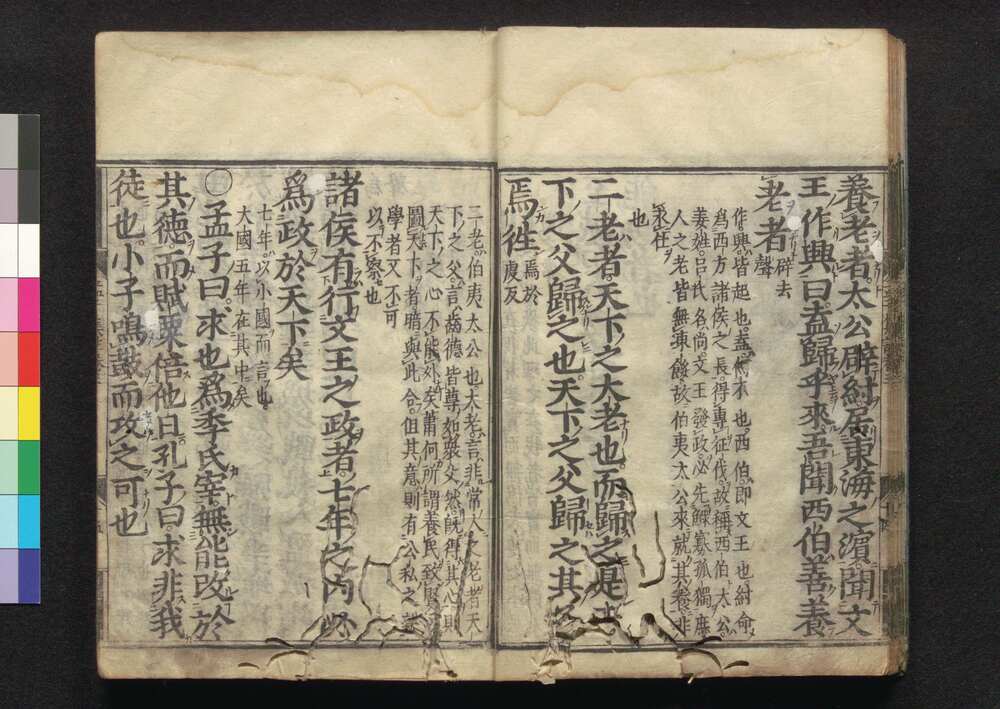 養老者太公辟紂居東海之濱聞文
王作興曰盍歸乎來吾聞西伯善養
老者辟去
聲
作興皆起也盍何不也西伯即文王也紂命
爲西方諸侯之長得專征伐故稱西伯太公
姜姓呂氏名尚文王發政必先鰥寡孤獨庶
人之老皆無凍餒故伯夷太公來就其養非
求仕
也
二老者天下之大老也而歸之是
下之父歸之也天下之父歸之其
焉徃焉於
虔反
二老伯夷太公也大老言非常人之老者天
下之父言齒德皆尊如衆父然既得其心則
天下之心不能外矣蕭何所謂養民致賢
圖天下者暗與此合但其意則有公私之
學者又不可
以不察也
諸侯有行文王之政者七年之内必
爲政於天下矣
七年以小國而言也
大國五年在其中矣
○孟子曰求也爲季氏宰無能改於
其德而賦粟倍他日孔子曰求非我
徒也小子鳴鼓而攻之可也